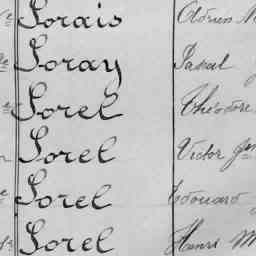 Sorais
Soray Pascal
Sorel Théodore
Sorel Victor
Sorel Edouard
Sorel Henri M